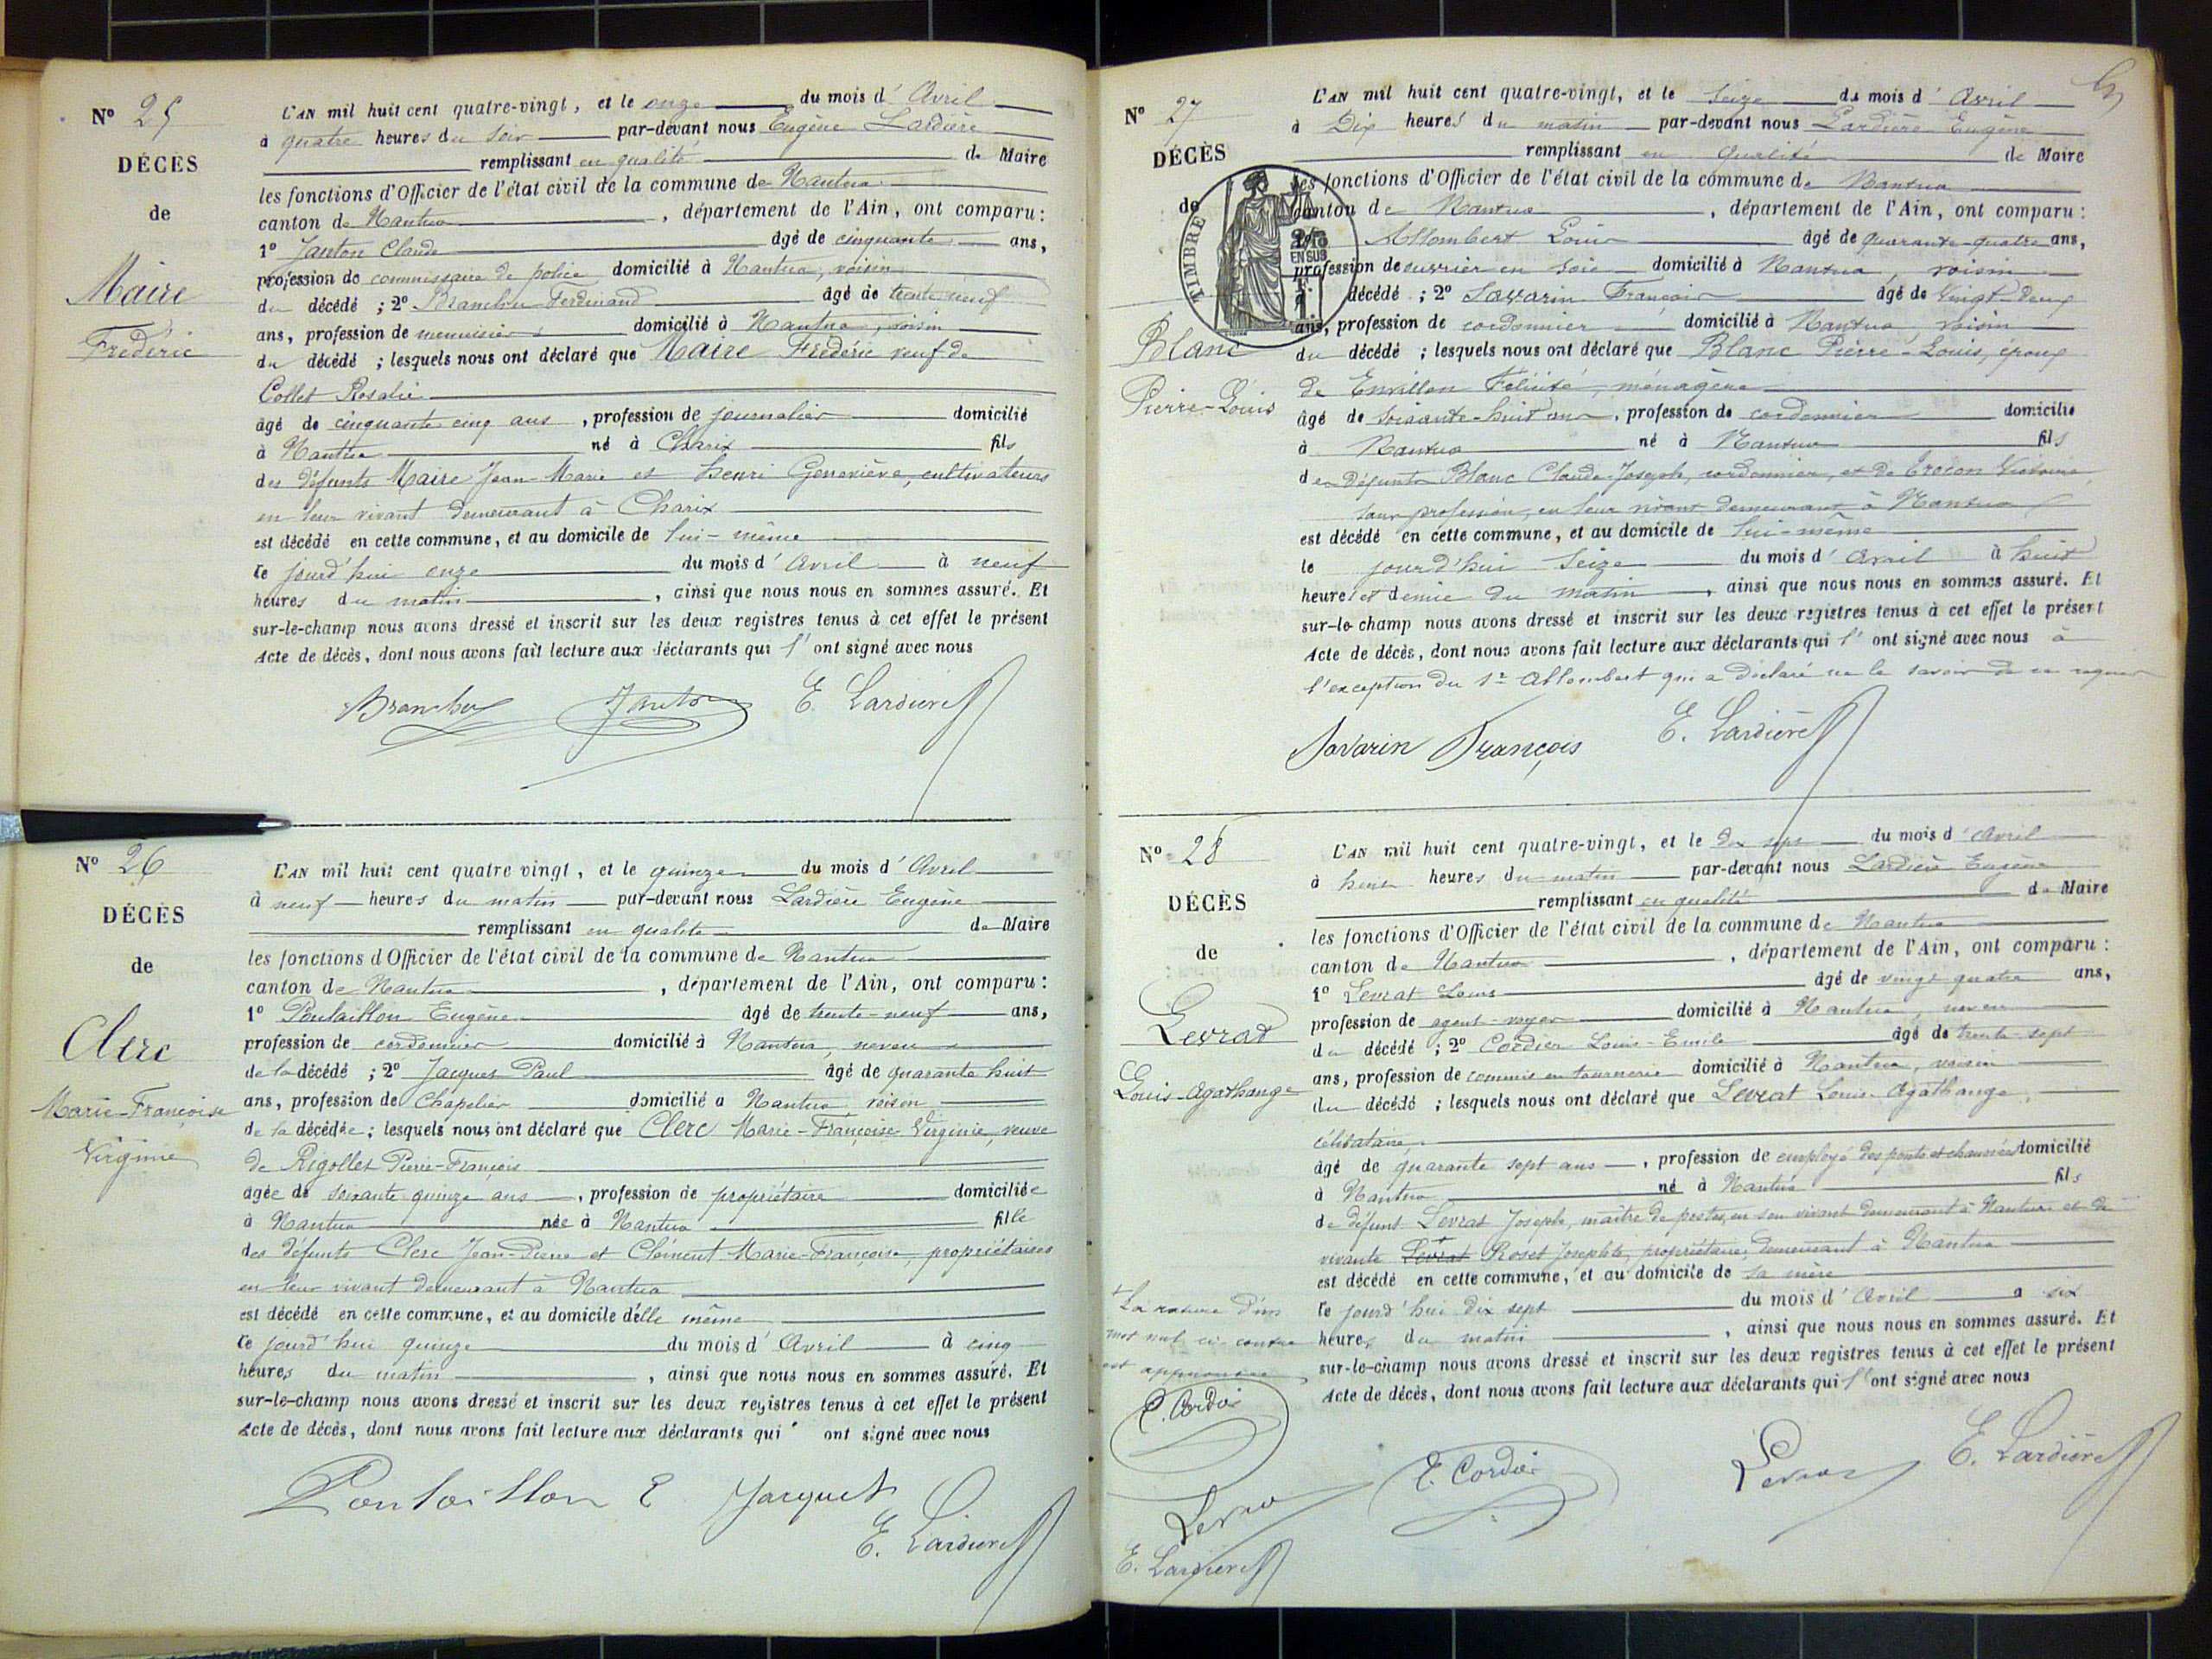 N° 25
DÉCÈS
de
Maire
Frédéric
L'AN mil huit cent quatre-vingt, et le onze du mois d'Avril
à quatre heures du soir par-devant nous Eugène Lardière
remplissant en qualité de Maire
les fonctions d'Officier de l'état civil de la commune de Nantua
canton de Nantua, département de l'Ain, ont comparu :
1° Janton Claude âgé de cinquante ans,
profession de commissaire de police domicilié à Nantua, voisin
du décédé ; 2° Brancher Ferdinand âgé de trente neuf
ans, profession de menuisier domicilié à Nantua, voisin
du décédé ; lesquels nous ont déclaré que Maire Frédéric veuf de
Collet Rosalie
âgé de cinquante cinq ans, profession de journalier domicilié
à Nantua né à Charix fils
des défunts Maire Jean-Marie et henri Geneviève, cultivateurs
en leur vivant demeurant à Charix
est décédé en cette commune, et au domicile de lui-même
le jourd'hui onze du mois d'Avril à neuf
heures du matin, ainsi que nous nous en sommes assuré. Et
sur-le-champ nous avons dressé et inscrit sur les deux registres tenus à cet effet le présent
Acte de décès, dont nous avons fait lecture aux déclarants qui l'ont signé avec nous
Brancher Janton E. Lardière
N° 26
DÉCÈS
de
Clerc
Marie-Françoise
Virginie
L'AN mil huit cent quatre vingt, et le quinze du mois d'Avril
à neuf heures du matin par-devant nous Lardière Eugène
remplissant en qualité de Maire
les fonctions d'Officier de l'état civil de la commune de Nantua
canton de Nantua, département de l'Ain, ont comparu :
1° Poulaillon Eugène âgé de trente-neuf ans,
profession de cordonnier domicilié à Nantua, neveu
de la décédé ; 2° Jacquet Paul âgé de quarante huit
ans, profession de Chapelier domicilié à Nantua, voisin
de la décédée ; lesquels nous ont déclaré que Clerc Marie-Françoise Virginie, veuve
de Rigollet Pierre-François
âgée de soixante quinze ans, profession de propriétaire domiciliée
à Nantua née à Nantua fille
des défunts Clerc Jean-Pierre et Clément Marie-Françoise, propriétaires
en leur vivant demeurant à Nantua
est décédé en cette commune, et au domicile d'elle même
le jourd'hui quinze du mois d'Avril à cinq
heures du matin, ainsi que nous nous en sommes assuré. Et
sur-le-champ nous avons dressé et inscrit sur les deux registres tenus à cet effet le présent
Acte de décès, dont nous avons fait lecture aux déclarants qui ont signé avec nous
Poulaillon E Jacquet
E. Lardière
N° 27
DÉCÈS
de
TIMBRE
2/10
EN SUS
Blanc
Pierre-Louis
L'AN mil huit cent quatre-vingt, et le seize du mois d'Avril
à Dix heures du matin par-devant nous Lardière Eugène
remplissant en qualité de Maire
les fonctions d'Officier de l'état civil de la commune de Nantua
canton de Nantua, département de l'Ain, ont comparu :
1° Allombert Louis âgé de quarante-quatre ans,
profession de ouvrier en soie domicilié à Nantua, voisin
décédé ; 2° Savarin François âgé de Vingt-deux
ans, profession de cordonnier domicilié à Nantua, voisin
du décédé ; lesquels nous ont déclaré que Blanc Pierre-Louis, époux
de Félicité, ménagère
âgé de soixante-huit ans, profession de cordonnier domicilié
à Nantua né à Nantua fils
des défunts Blanc Claude-Joseph, cordonnier, et de Victoire
sans profession, en leur vivant demeurant à Nantua
est décédé en cette commune, et au domicile de lui-même
le jourd'hui Seize du mois d'Avril à huit
heures et demie du matin, ainsi que nous nous en sommes assuré. Et
sur-le-champ nous avons dressé et inscrit sur les deux registres tenus à cet effet le présent
Acte de décès, dont nous avons fait lecture aux déclarants qui l'ont signé avec nous à
l'exception du Sr Allombert qui a déclaré ne le savoir de ce requis
Savarin François E. Lardière
N° 28
DÉCÈS
de
Levrat
Louis-Agathange
L'AN mil huit cent quatre-vingt, et le dix sept du mois d'Avril
à heures du matin par-devant nous Lardière Eugène
remplissant en qualité de Maire
les fonctions d'Officier de l'état civil de la commune de Nantua
canton de Nantua, département de l'Ain, ont comparu :
1° Levrat Louis âgé de vingt quatre ans,
profession de agent-voyer domicilié à Nantua, neveu
du décédé ; 2° Cordier Louis-Emile âgé de trente-sept
ans, profession de commis en tannerie domicilié à Nantua, voisin
du décédé ; lesquels nous ont déclaré que Levrat Louis-Agathange,
célibataire,
âgé de quarante sept ans, profession de employé des ponts et chaussées domicilié
à Nantua né à Nantua fils
de défunt Levrat Joseph, maître de postes, en son vivant demeurant à Nantua et de
vivante Levrat Roset Josephte, propriétaire, demeurant à Nantua
est décédé en cette commune, et au domicile de sa mère
le jourd'hui dix sept du mois d'Avril à six
heures du matin, ainsi que nous nous en sommes assuré. Et
sur-le-champ nous avons dressé et inscrit sur les deux registres tenus à cet effet le présent
Acte de décès, dont nous avons fait lecture aux déclarants qui l'ont signé avec nous
+ La rature d'un
mot nul ci-contre
est approuvée
E. Cordier
Levrat
E. Lardière
E. Cordier Levrat E. Lardière